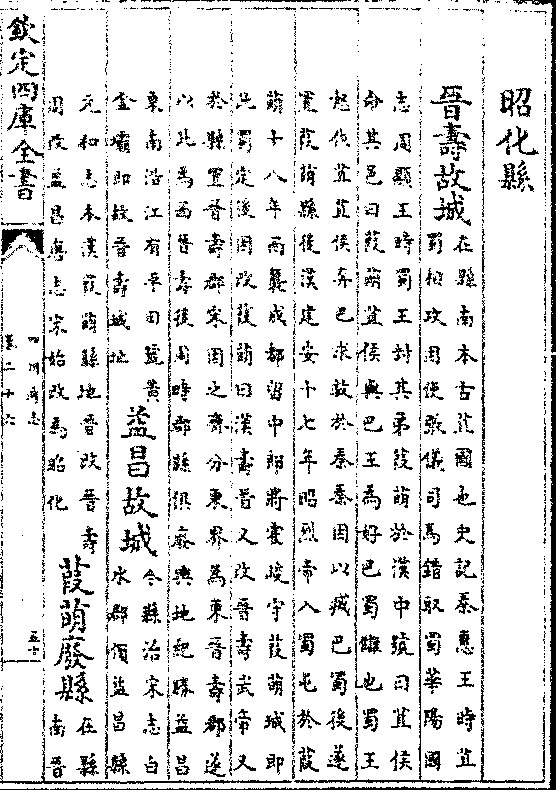 昭化縣
晉壽故城
在縣南本古苴國也史記秦惠王時苴
蜀相攻用使張儀司馬錯取蜀華陽國
志周顯王時蜀王封其弟葭萌於漢中號曰苴侯
命其邑曰葭萌苴侯與巴王為好巴蜀讎也蜀王
怒伐苴苴侯奔巴求救於秦秦因以滅巴蜀後遂
置葭萌縣後漢建安十七年昭烈帝入蜀屯於葭
萌十八年西襲成都留中郎將霍峻守葭萌城即
此蜀定後因改葭萌曰漢壽晉又改晉壽武帝又
於縣置晉壽郡宋因之齊分東界為東晉壽郡遂
以此為西晉壽後周時郡縣俱廢輿地紀勝益昌
東南沿江有平田號黃
金壩即故晉壽城址
益昌故城
今縣治宋志白
水郡領益昌縣
元和志本漢葭萌縣地晉改晉壽
周改益昌舊志宋始改為昭化
葭萌廢縣
在縣
南晉
欽定四庫全書
四川通志
卷二十六
五十